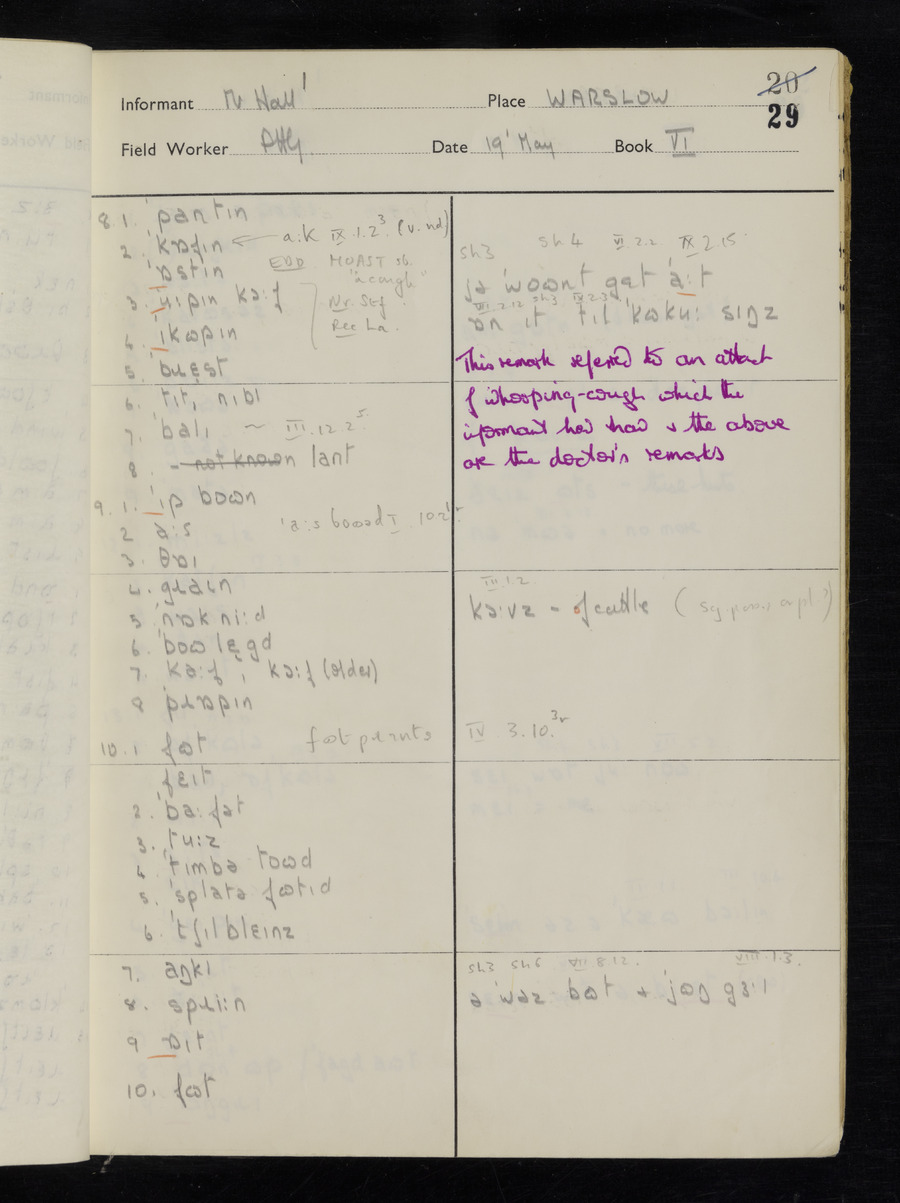 20
29
Informant Mr Hall Place WARSLOW
Field Worker PHG Date 19' May Book VI
8. 1. 'pantin
2. 'kɒfin ← a:k IX.1.2³. (v. nd)
'ɒstin EDD HOAST sb.
"a cough"
3. 'u:pin kɒ:f Nr. Stf
Ree La.
4. 'ikɷpin
5. bɹɛst
6. tit, nibl
7. 'bali ~ III.12.2⁵.
8. – not known lant
9. 1. 'ip boʊn
2 a:s 'a:s bɷəd I. 10.2
3. θɒi
4. gɹɔin
5 'nɒk ni:d
6. 'bow legd
7. ka:f, kɒ:f (older)
8 'pɹɒpin
10. 1 fɷt fɷtpɹints
feit
2. 'ba:fɷt
3. tu:z
4 'timbə toʊd
5. 'splatə fɷtid
6. 'tʃilbleinz
7. aŋkl
8. spɹi:n
9 ɒit
10. fɷt
sh3 sh4 VI 2.2 IX 2.15.
jə 'woʊnt gɛt a:t
VIII.2.12 sh3 IV 2.3
ɒn it til 'kɷku: siŋz
This remark referred to an attack
of whooping-cough which the
informant had had & the above
are the doctor's remarks
III.1.2.
kɒ:vz – of cattle (sg. poss. a pl.?)
IV 3.10.³ʳ
sh3 sh6 VIII 8.12. VIII.1.3.
ə 'wəz bɷt ə jɷŋ gɜ:l